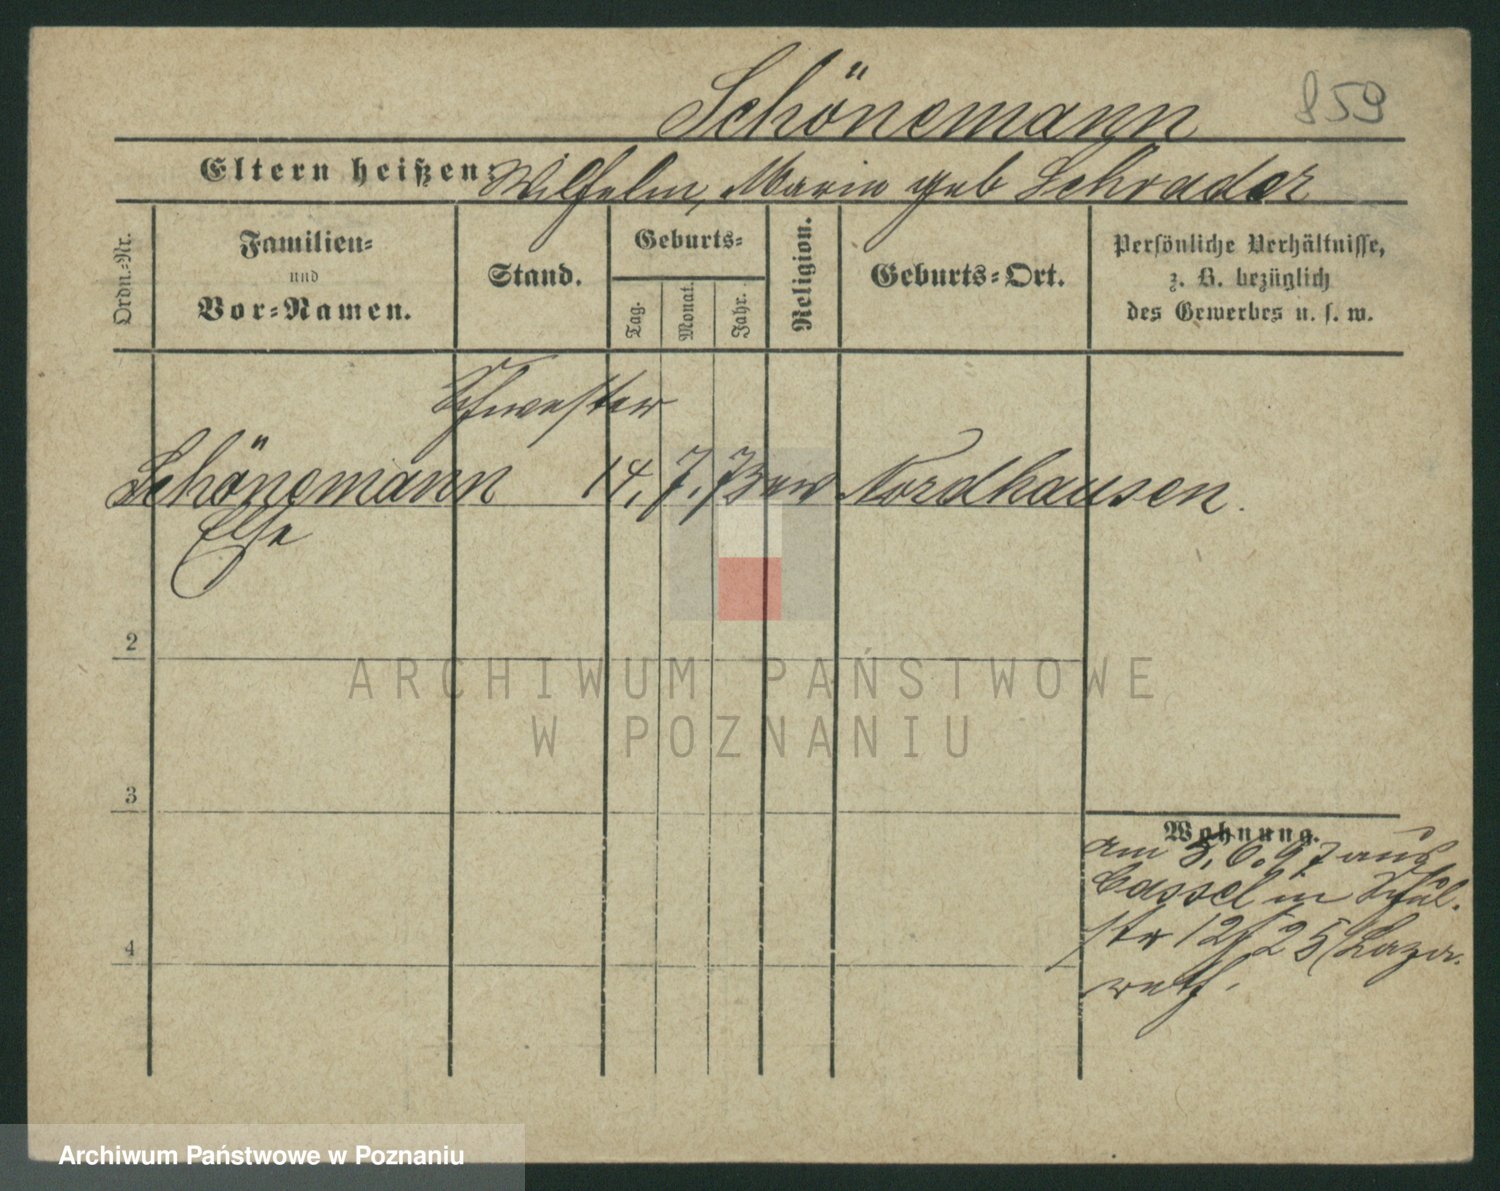 Schönemann
859
Eltern heißen: Wilhelm, Marie geb Schrader
Ordn.=Nr.
Familien=
und
Vor=Namen.
Stand.
Geburts=
Tag.
Monat.
Jahr.
Religion.
Geburts=Ort.
Persönliche Verhältnisse,
z. B. bezüglich
des Gewerbes u. s. w.
Schwester
Schönemann 14. 7. 73 ev Nordhausen.
Else
2
3
4
Wohnung.
am 5. 6. 97 aus
Cassel in Schul-
str 12/25 Laza-
reth.
ARCHIWUM PAŃSTWOWE
W POZNANIU
Archiwum Państwowe w Poznaniu